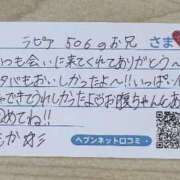 ラピア 506のお兄 さま
いつも会いに来てくれてありがとう〜
タバもおいしかったよ〜!!いっぱい
できてうれしかったよ お腹ちゃんとあ
めてね!!
もか
ヘブンネット口コミ